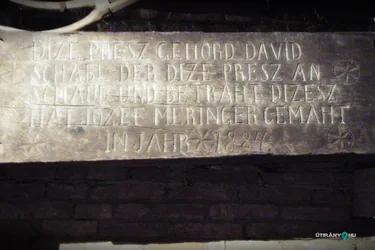 DIZE PRESZ GEHÖRD DAVID
SCHABL DER DIZE PRESZ AN
SCHAUT UND BETRAHT DIZESZ
HAT JOZEF MERINGER GEMAHT
IN JAHR * 1884
ÚTIRÁNY.HU